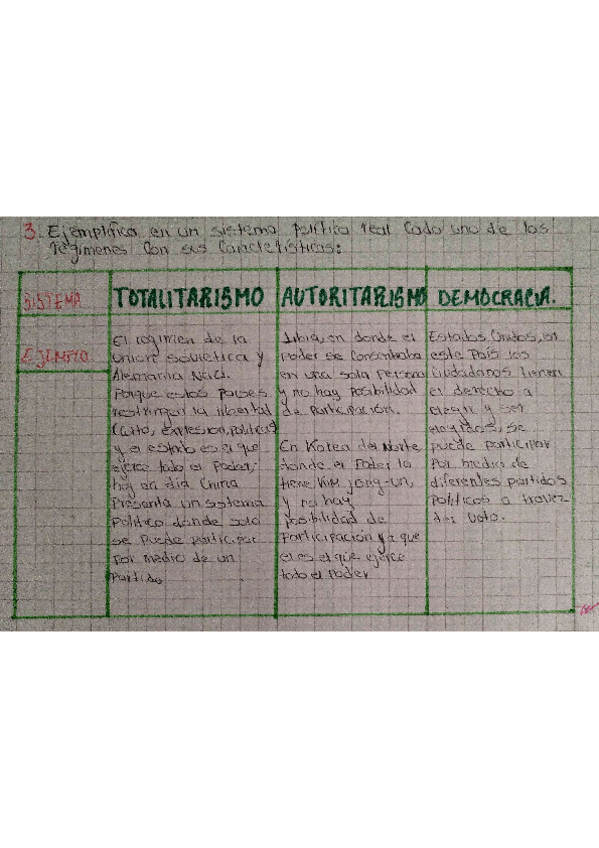 3. Ejemplifica en un sistema político real cada uno de los
regímenes con sus características:
SISTEMA
TOTALITARISMO
AUTORITARISMO
DEMOCRACIA.
EJEMPLO
El régimen de la
Unión soviética y
Alemania Nazi.
Porque estos países
restringen la libertad
expresión, política)
y el estado es el que
ejerce todo el Poder,
hoy en día China
Presenta un sistema
Político donde solo
se Puede participar
Por medio de un
Partido
Libia, en donde el
Poder se concentraba
en una sola persona
y no hay posibilidad
de Participación.
En Korea del Norte
donde el Poder lo
tiene Kim jong-un,
y no hay
posibilidad de
Participación ya que
el es el que ejerce
todo el Poder
Estados Unidos, en
este País los
ciudadanos tienen
el derecho a
elegir y ser
elegidos, se
puede participar
Por medio de
diferentes partidos
Políticos a travez
del voto.